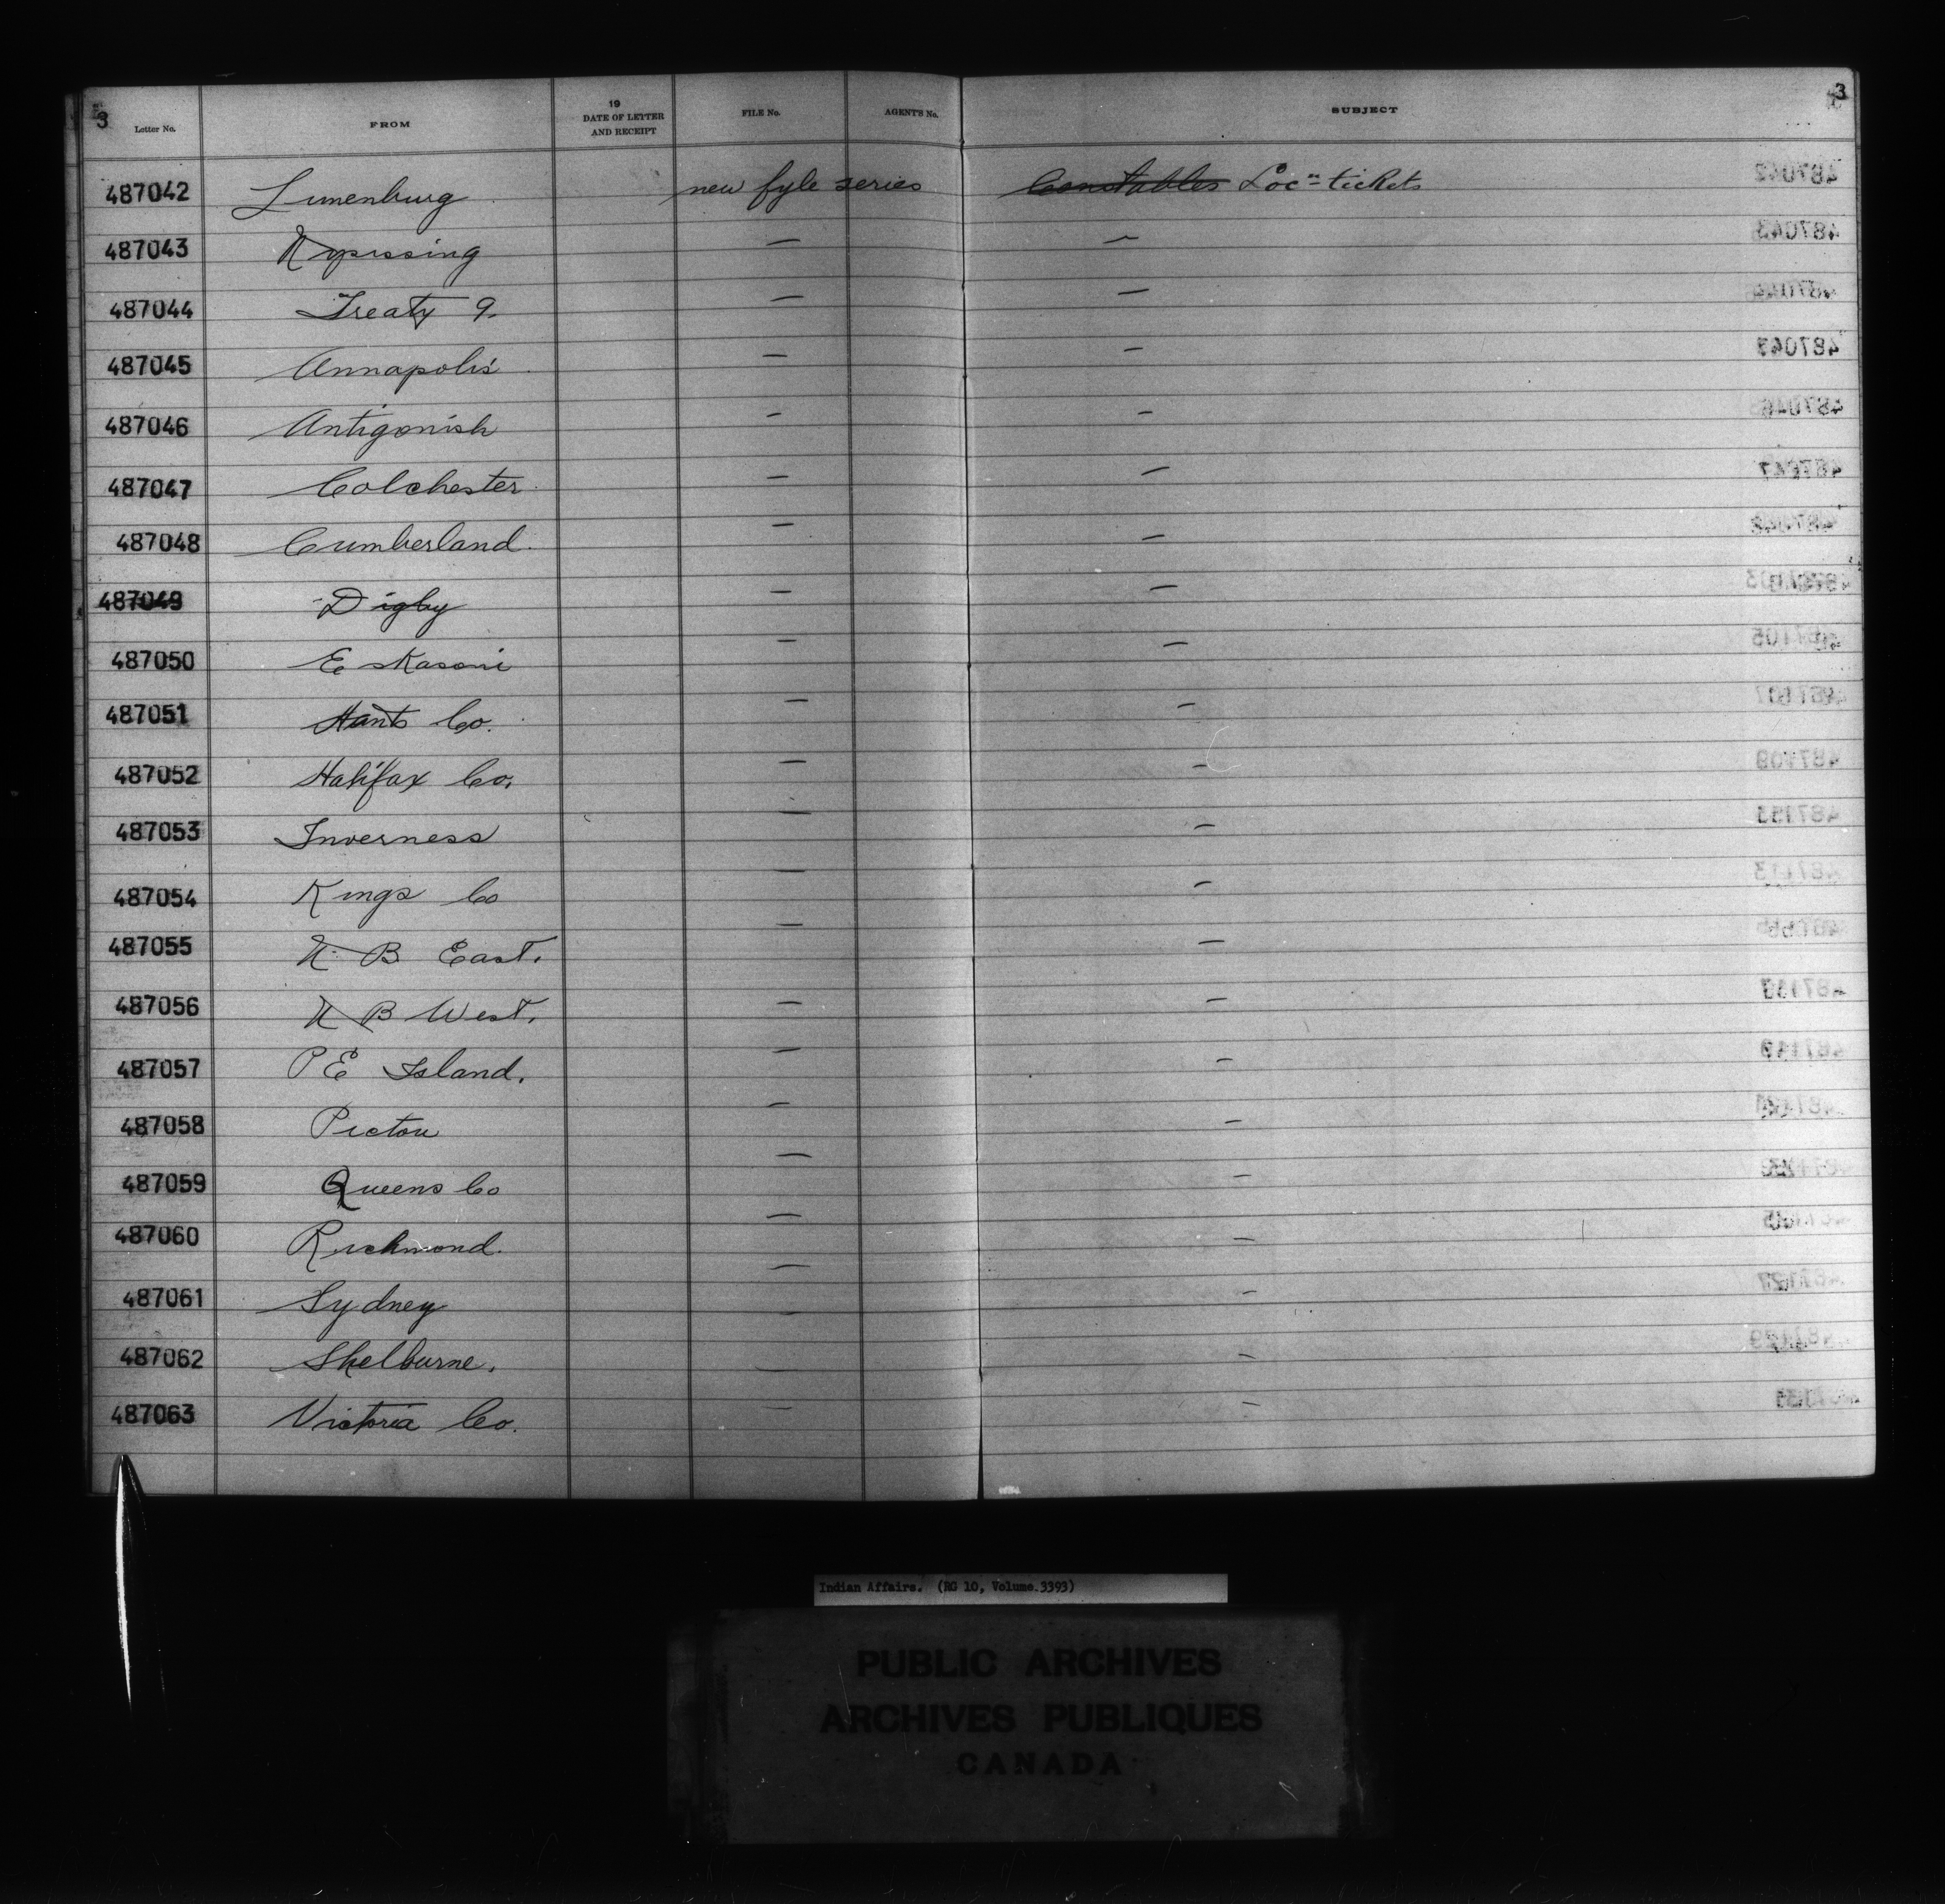 3 Letter No. FROM 19 DATE OF LETTER AND RECEIPT FILE No. AGENT'S No. SUBJECT 3
487042 Lunenburg new fyle series Constables Locn tickets
487043 Nipissing — —
487044 Treaty 9. — —
487045 Annapolis — —
487046 Antigonish — —
487047 Colchester — —
487048 Cumberland. — —
487049 Digby — —
487050 Eskasoni — —
487051 Hants Co. — —
487052 Halifax Co. — —
487053 Inverness — —
487054 Kings Co — —
487055 N. B. East. — —
487056 N B West. — —
487057 P E Island. — —
487058 Pictou — —
487059 Queens Co — —
487060 Richmond. — —
487061 Sydney — —
487062 Shelburne. — —
487063 Victoria Co. — —
Indian Affairs. (RG 10, Volume.3393)
PUBLIC ARCHIVES
ARCHIVES PUBLIQUES
CANADA